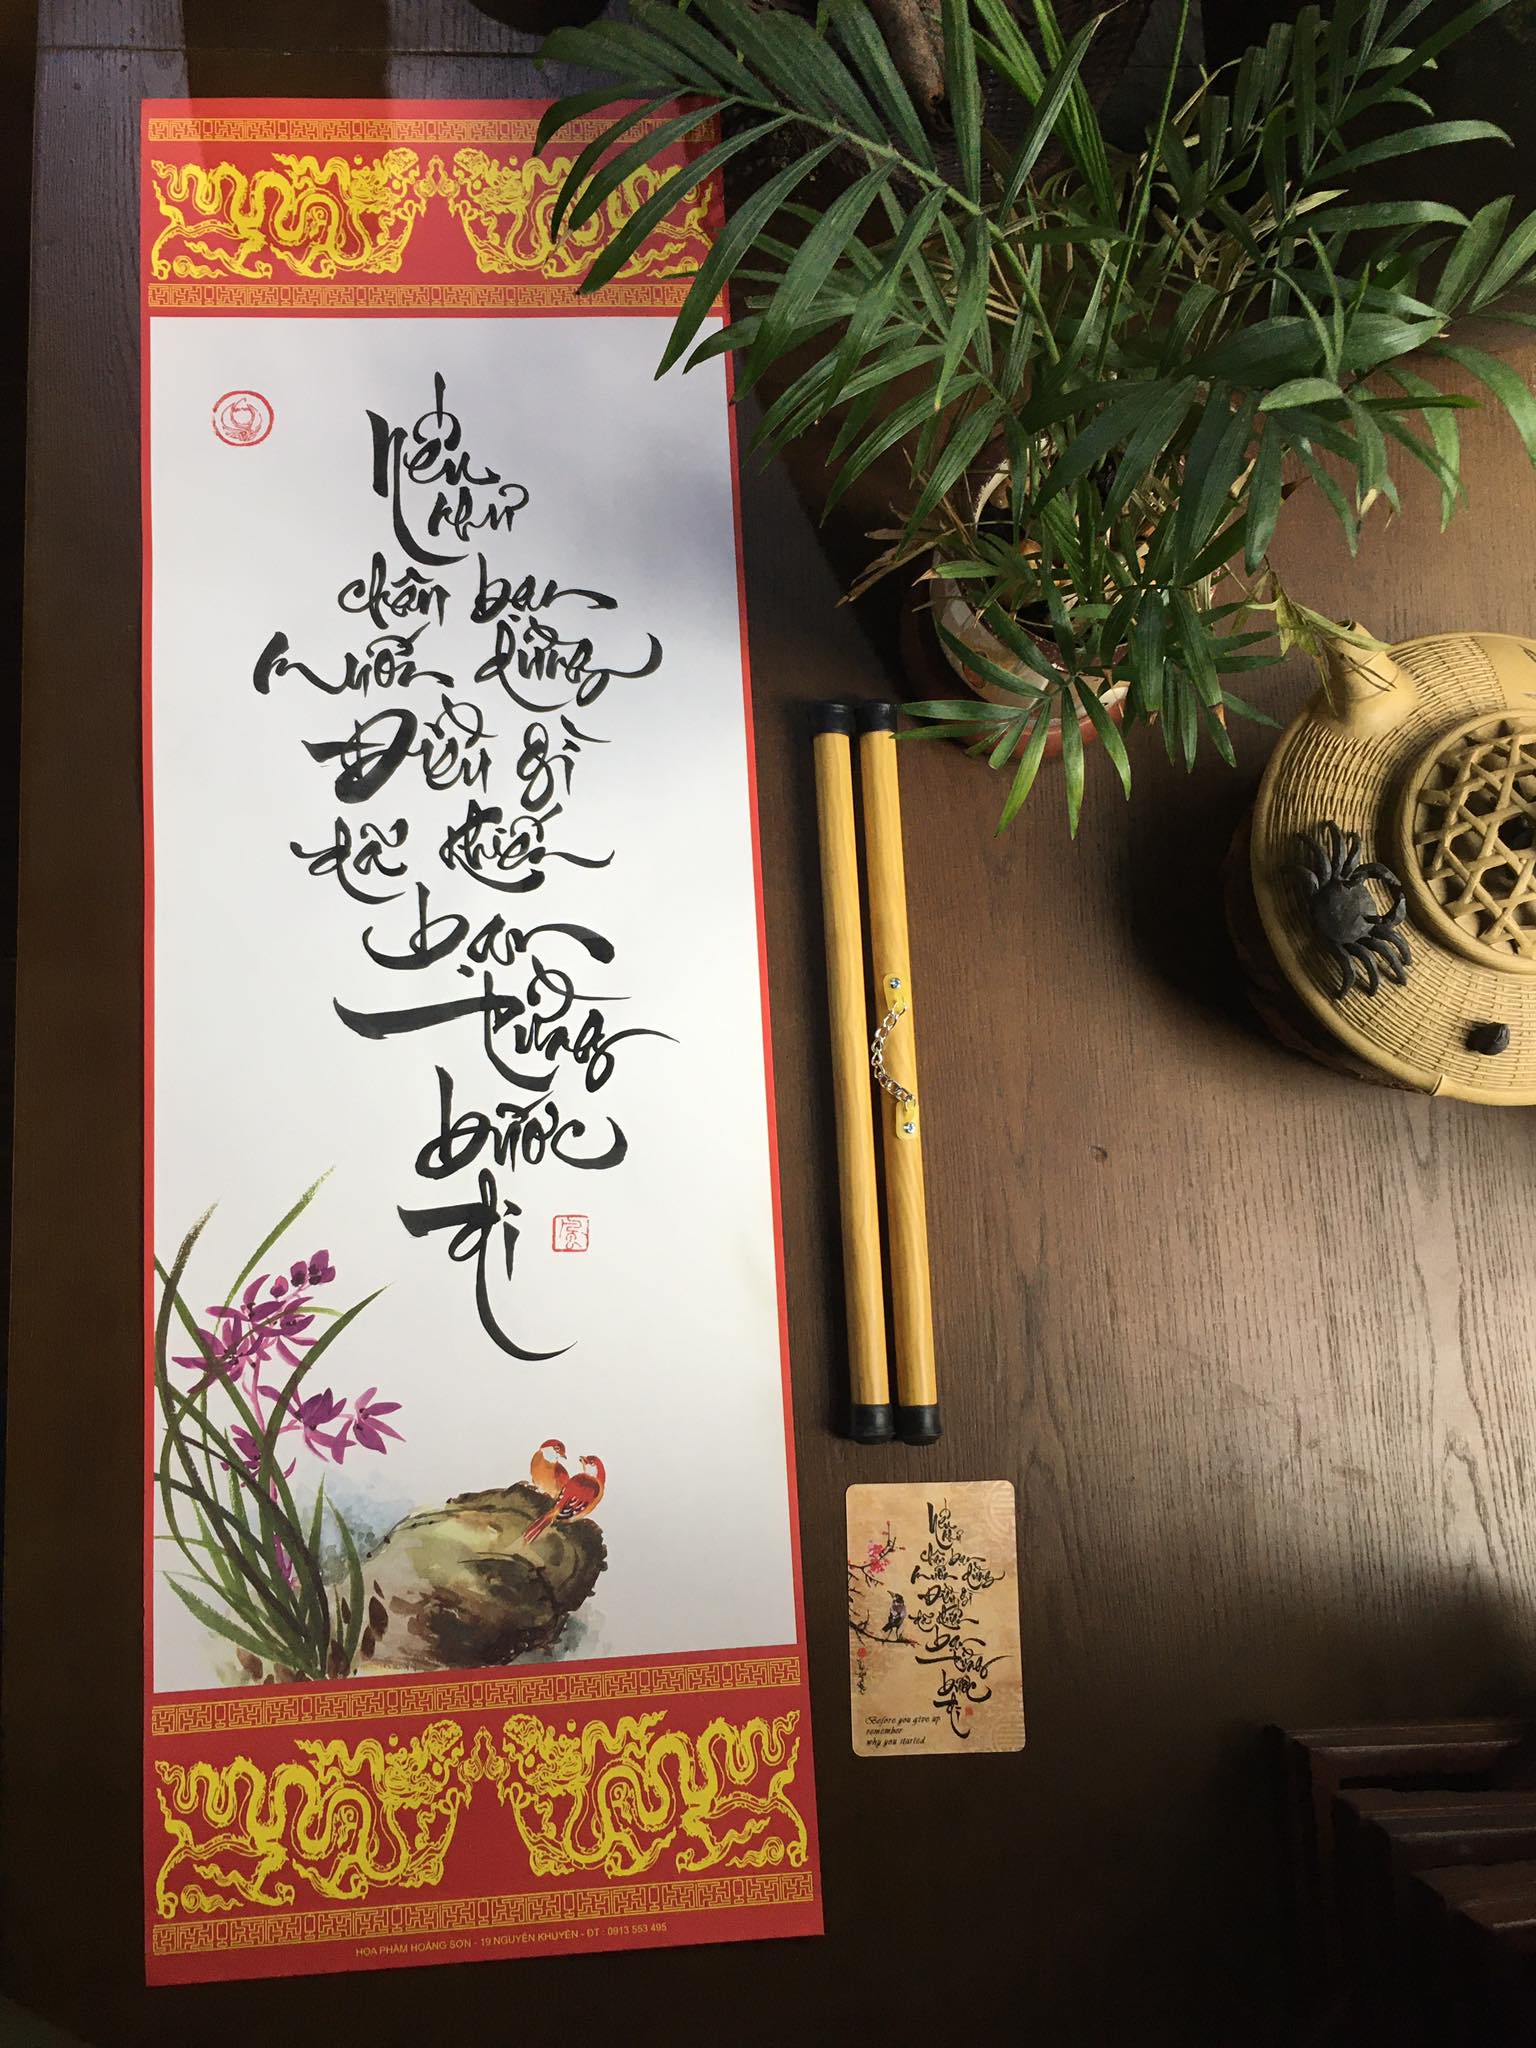 Nếu như
chân bạn
muốn dừng
Điều gì
đã khiến
bạn
từng
bước
đi
HỌA PHẨM HOÀNG SƠN - 19 NGUYỄN KHUYẾN - ĐT : 0913 553 495
Nếu
như
chân bạn
muốn dừng
Điều gì
đã khiến
bạn
từng
bước
đi
Before you give up
remember
why you started